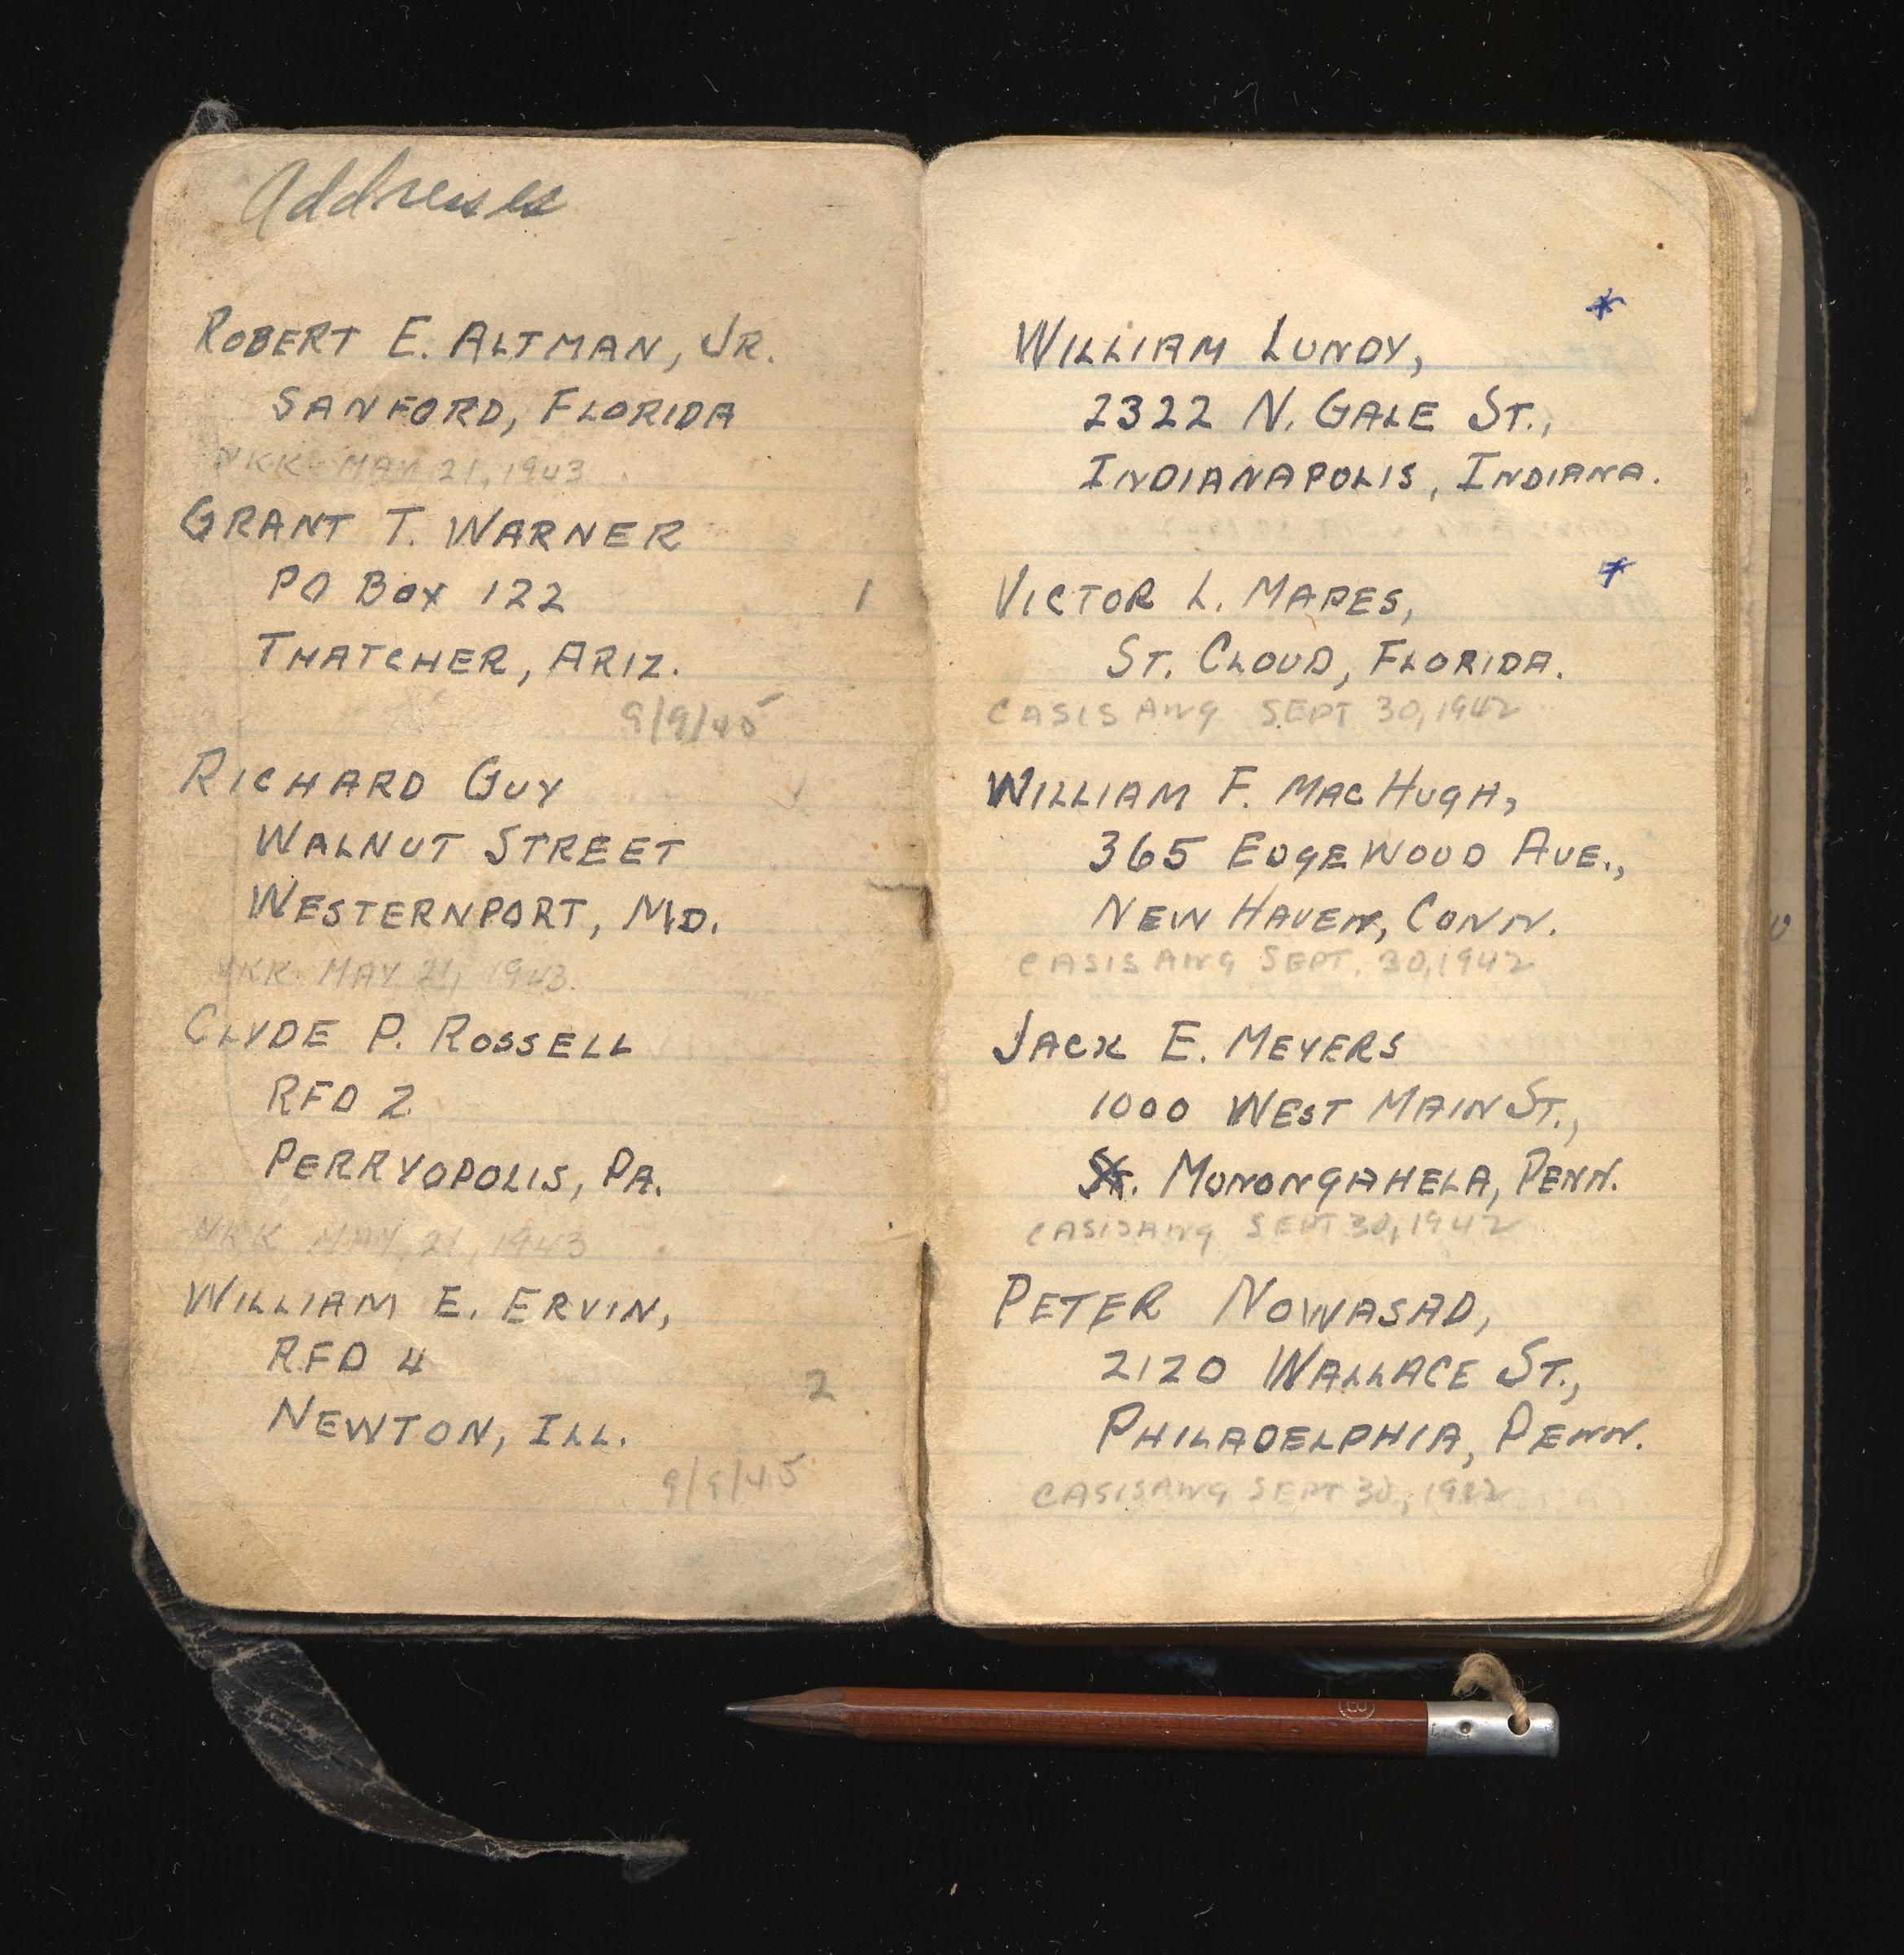 Addresses
ROBERT E. ALTMAN, JR.
SANFORD, FLORIDA
NKK MAY 21, 1943
GRANT T. WARNER
PO BOX 122
1
THATCHER, ARIZ.
9/9/45
RICHARD GUY
WALNUT STREET
WESTERNPORT, MD.
NKK MAY 21, 1943
CLYDE P. ROSSELL
RFD 2
PERRYOPOLIS, PA.
NKK MAY 21, 1943
WILLIAM E. ERVIN,
RFD 4
2
NEWTON, ILL.
9/9/45
*
WILLIAM LUNDY,
2322 N. GALE ST.,
INDIANAPOLIS, INDIANA.
*
VICTOR L. MAPES,
ST. CLOUD, FLORIDA.
CASISANG SEPT 30, 1942
WILLIAM F. MACHUGH,
365 EDGEWOOD AVE.,
NEW HAVEN, CONN.
CASISANG SEPT. 30, 1942
JACK E. MEYERS
1000 WEST MAIN ST.,
MONONGAHELA, PENN.
CASISANG SEPT 30, 1942
PETER NOWASAD,
2120 WALLACE ST.,
PHILADELPHIA, PENN.
CASISANG SEPT 30, 1942